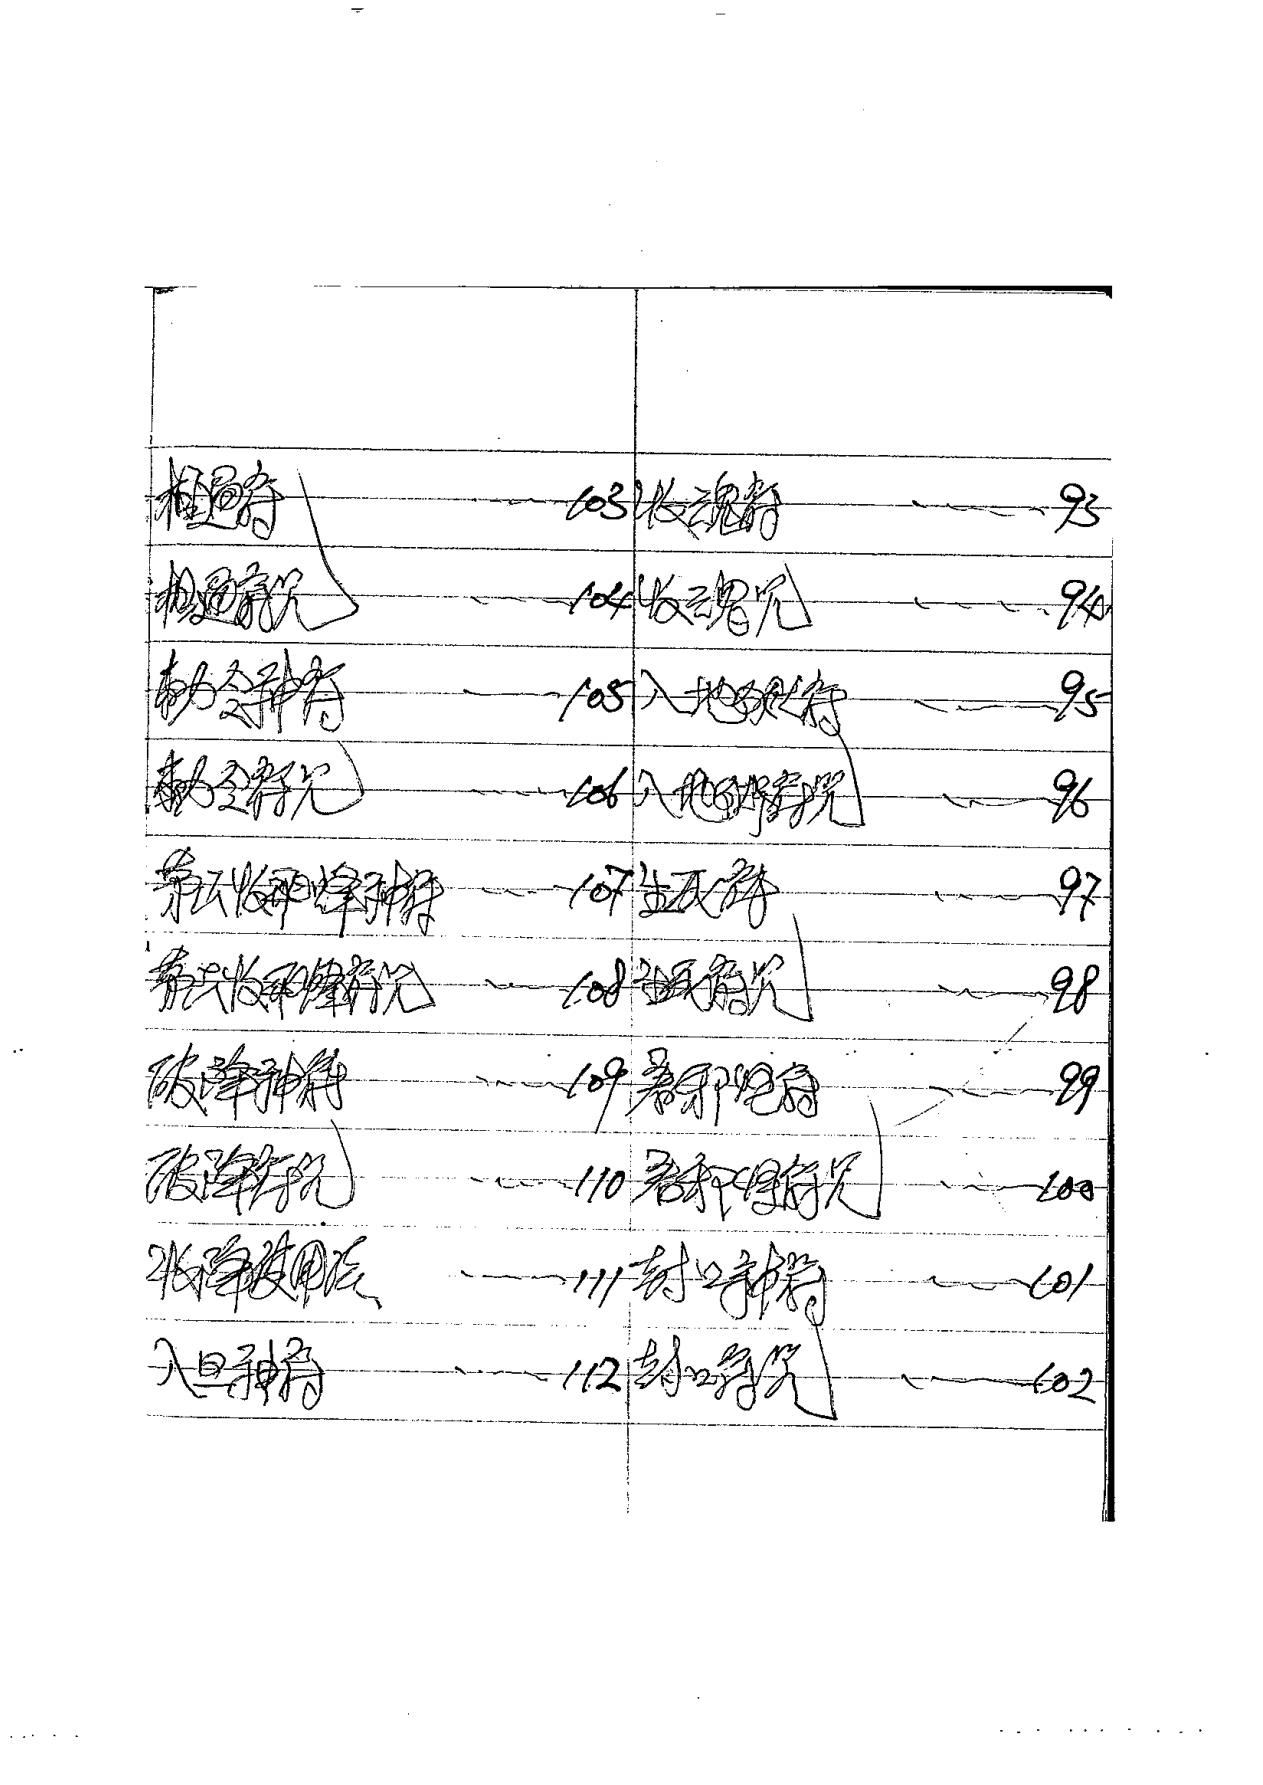 收魂符 93
收魂咒 94
入地獄符 95
入地獄符咒 96
生民符 97
生民符咒 98
邪符 99
邪符咒 100
封口神符 101
封口符咒 102
符 103
符咒 104
勅令神符 105
勅令符咒 106
收邪神符 107
收邪符咒 108
破降神符 109
破降符咒 110
降使用法 111
入神符 112